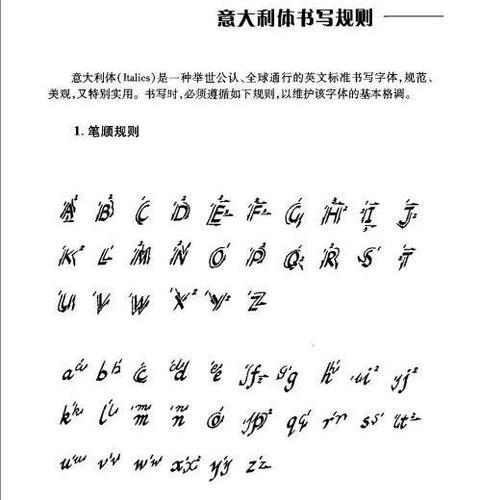 意大利体书写规则
意大利体(Italics)是一种举世公认、全球通行的英文标准书写字体,规范、
美观,又特别实用。书写时,必须遵循如下规则,以维护该字体的基本格调。
1. 笔顺规则
A B C D E F G H I J
K L M N O P Q R S T
U V W X Y Z
a b c d e f g h i j
k l m n o p q r s t
u v w x y z